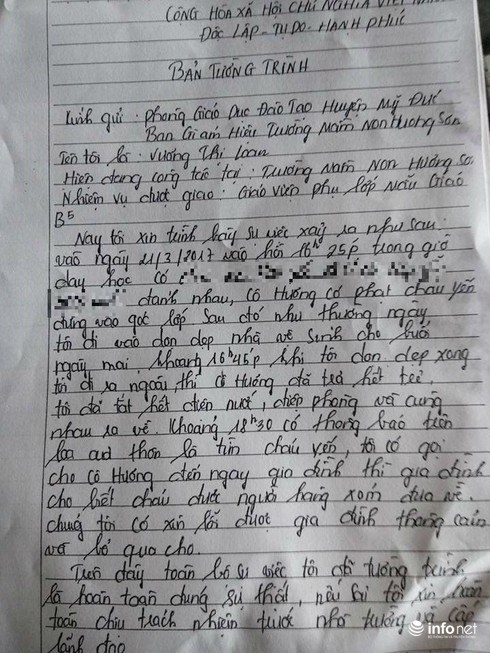 CỘNG HÒA XÃ HỘI CHỦ NGHĨA VIỆT NAM
ĐỘC LẬP - TỰ DO - HẠNH PHÚC
BẢN TƯỜNG TRÌNH
Kính gửi: Phòng Giáo Dục Đào Tạo Huyện Mỹ Đức
Ban Giám Hiệu Trường Mầm Non Hương Sơn
Tên tôi là: Vương Thị Loan
Hiện đang công tác tại: Trường Mầm Non Hương Sơ
Nhiệm vụ được giao: Giáo viên phụ lớp Mẫu Giáo
B5
Nay tôi xin trình bày sự việc xảy ra như sau:
vào ngày 21/3/2017 vào hồi 16h 25p trong giờ
dạy học có
đánh nhau, cô Hướng có phạt cháu yến
đứng vào góc lớp sau đó như thường ngày
tôi đi vào dọn dẹp nhà vệ sinh cho buổi
ngày mai. khoảng 16h45p khi tôi dọn dẹp xong
tôi đi ra ngoài thì cô Hướng đã trả hết trẻ.
tôi đã tắt hết điện nước, điệp phòng và cùng
nhau ra về. Khoảng 18h30 có thông báo trên
loa của thôn là tìm cháu yến, tôi có gọi
cho cô Hướng đến ngay gia đình thì gia đình
cho biết cháu được người hàng xóm đưa về.
chúng tôi có xin lỗi được gia đình thông cảm
và bỏ qua cho.
Trên đây toàn bộ sự việc tôi đã tường trình
là hoàn toàn đúng sự thật, nếu sai tôi xin hoàn
toàn chịu trách nhiệm trước nhà trường và cấp
lãnh đạo
infonet